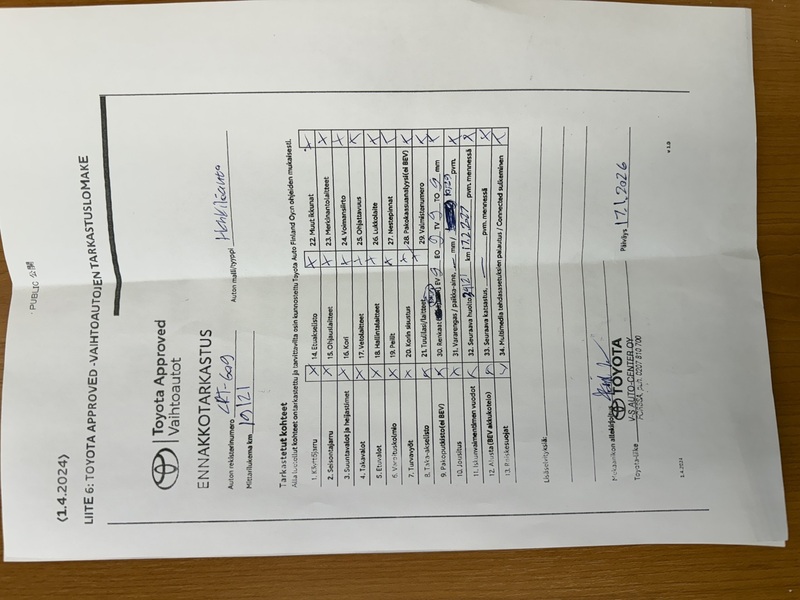 PUBLIC 公開
(1.4.2024)
LIITE 6: TOYOTA APPROVED -VAIHTOAUTOJEN TARKASTUSLOMAKE
Toyota Approved
Vaihtoautot
ENNAKKOTARKASTUS
Auton rekisterinumero
Auton malli/tyyppi
Mittarilukema km 19121
Tarkastetut kohteet
Alla luetellut kohteet on tarkastettu ja tarvittavilta osin kunnostettu Toyota Auto Finland Oy:n ohjeiden mukaisesti.
1. Käyttöjarru X 14. Etuakselisto X 22. Muut ikkunat X
2. Seisontajarru X 15. Ohjauslaitteet X 23. Merkinantolaitteet X
3. Suuntavalot ja heijastimet X 16. Kori X 24. Voimansiirto X
4. Takavalot X 17. Vetolaitteet X 25. Ohjattavuus X
5. Etuvalot X 18. Hallintalaitteet X 26. Lukkolaite X
6. Varoituskolmio X 19. Peilit X 27. Nestepinnat X
7. Turvavyöt X 20. Korin sisustus X 28. Pakokaasuanalyysi(ei BEV) X
8. Taka-akselisto X 21. Tuulilasi/laitteet X 29. Valmistenumero X
9. Pakoputkisto(ei BEV) X 30. Renkaat EV 9 EO 9 TV 9 TO 9 mm X
10. Jousitus X 31. Vararengas / paikka-aine, — mm / pvm. X
11. Iskunvaimentimen vuodot X 32. Seuraava huolto km pvm. mennessä X
12. Alusta (BEV akkukotelo) X 33. Seuraava katsastus, — pvm. mennessä X
13. Roiskesuojat X 34. Multimedia tehdasasetuksien palautus / Connected sulkeminen X
Lisäselvityksiä:
Mekaanikon allekirjoitus
Päiväys 17.1.2026
Toyota-liike
TOYOTA
V-S AUTO-CENTER OY
FORSSA, puh. 0207 810 700
1.4.2024
v 1.0